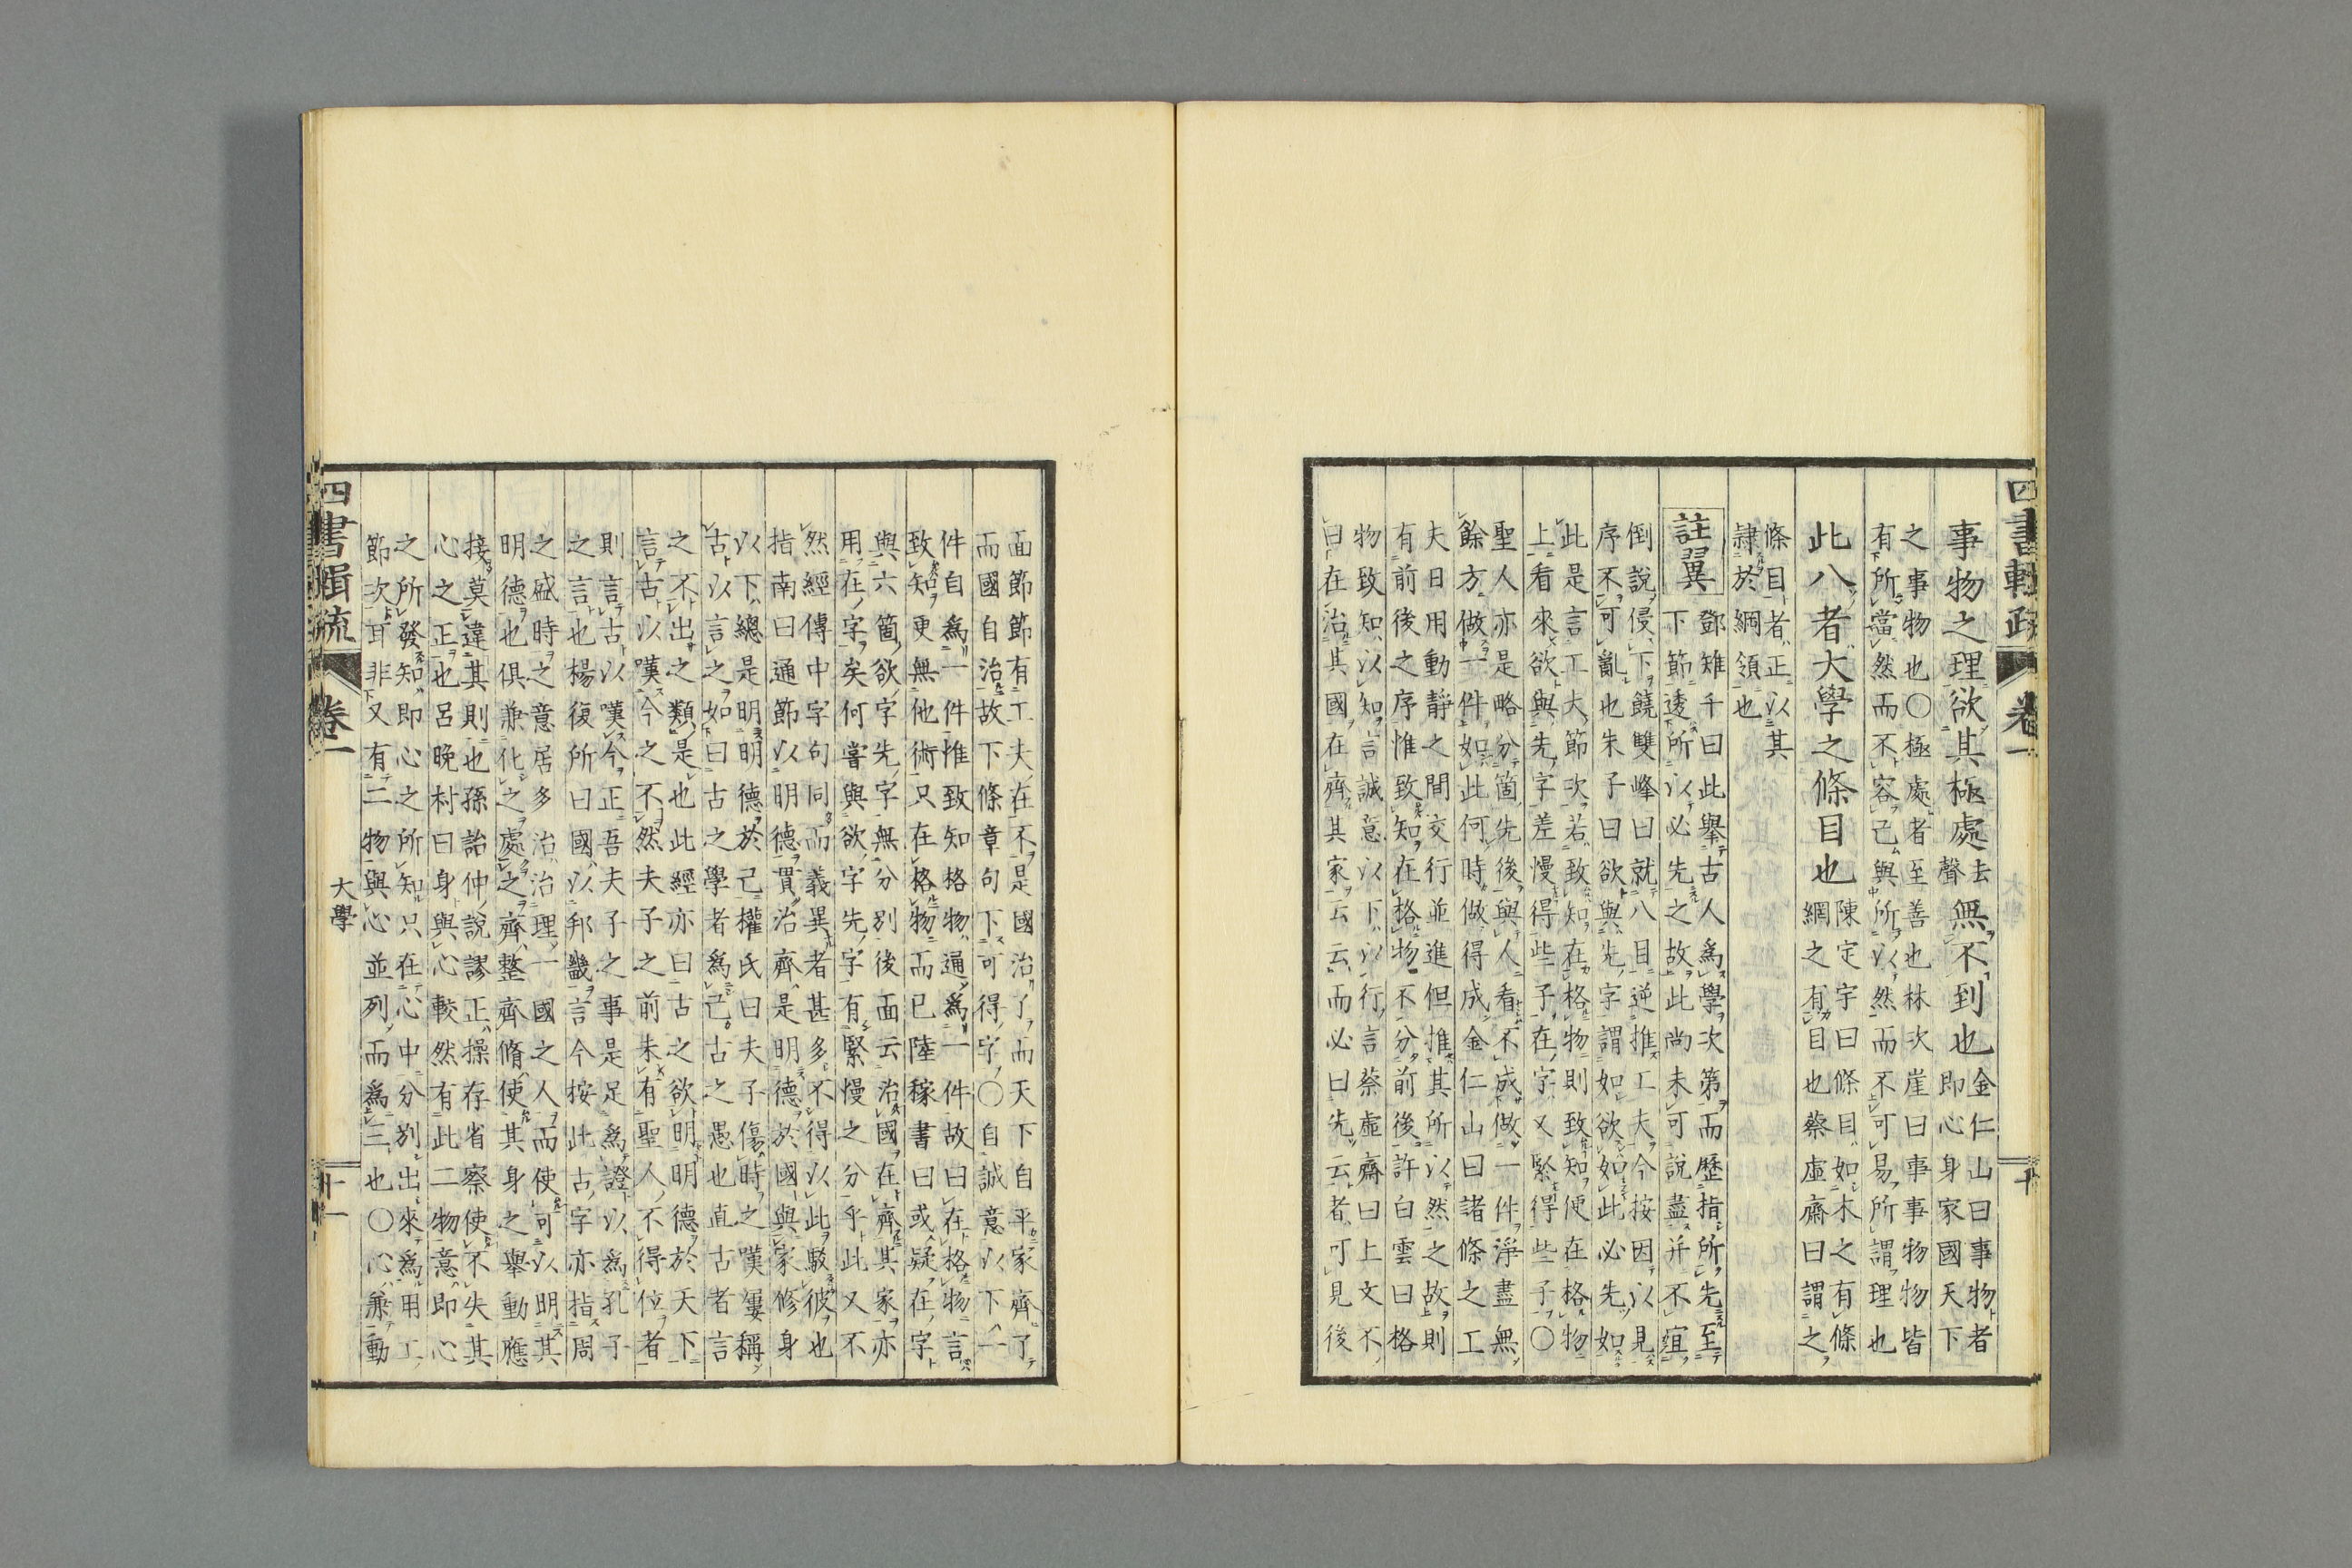 四書輯疏 卷一 十
事物之理欲其極處去聲無不到也金仁山曰事物者
即心身家國天下
之事物也〇極處者至善也林次崖曰事事物物皆
有所當然而不容己與所以然而不可易所謂理也
此八者大學之條目也陳定宇曰條目如木之有條
綱之有目也蔡虛齋曰謂之
條目者正以其
隷於綱領也
註翼 鄧雉千曰此舉古人爲學次第而歷指所先至
下節透所以必先之故此尚未可說盡并不宜
倒說侵下饒雙峰曰就八目逆推工夫今按因以見
序不可亂也朱子曰欲與先字謂如欲如此必先如
此是言工夫節次若致知在格物則致知便在格物
上看來欲與先字差慢得些子在字又緊得些子〇
聖人亦是略分箇先後與人看不成做一件淨盡無
餘方做一件如此何時做得成金仁山曰諸條之工
夫日用動靜之間交行並進但推其所以然之故則
有前後之序惟致知在格物不分前後許白雲曰格
物致知以知言誠意以下以行言蔡虛齋曰上文不
曰在治其國在齊其家云云而必曰先云者可見後
面節節有工夫在不是國治了而天下自平家齊了
而國自治故下條章句下可得字〇自誠意以下一
件自爲一件惟致知格物通爲一件故曰在格物言
致知更無他術只在格物而已陸稼書曰或疑在字
與六箇欲字先字無分別後面云治國在齊其家亦
用在字矣何嘗與欲字先字有緊慢之分乎此又不
然經傳中字句同而義異者甚多不得以此駁彼也
指南曰通節以明德貫治齊是明德於國與家修身
以下總是明明德於己權氏曰夫子傷時之嘆屢稱
古以言之如曰古之學者爲己古之愚也直古者言
之不出之類是也此經亦曰古之欲明明德於天下
言古以嘆今之不然夫子之前未有聖人不得位者
則言古以嘆今正吾夫子之事是足爲證以爲孔子
之言也楊復所曰國以邦畿言今按此古字亦指周
之盛時之意居多治治理一國之人而使可以明其
明德也俱兼化之處之齊整齊脩使其身之舉動應
接莫違其則也孫詒仲說謬正操存省察使不失其
心之正也呂晚村曰身與心較然有此二物意即心
之所發知即心之所知只在心中分別出來爲用工
節次耳非又有二物與心並列而爲三也〇心兼動
四書輯疏 卷一 大學 十一